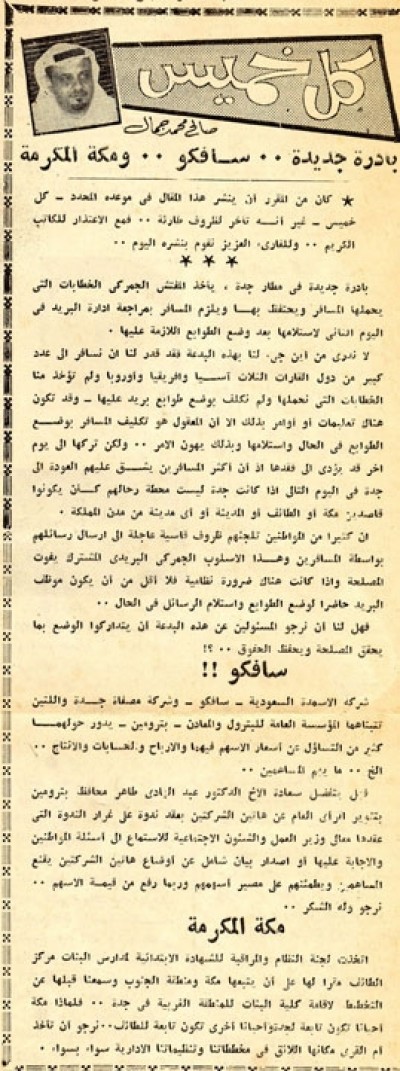 كل خميس
صالح محمد جمال
بادرة جديدة ٠٠ سافكو ٠٠ ومكة المكرمة
★ كان من المقرر أن ينشر هذا المقال في موعده المحدد - كل
خميس - غير أنه تأخر لظروف طارئة ٠٠ فمع الاعتذار للكاتب
الكريم ٠٠ وللقارىء العزيز نقوم بنشره اليوم ٠٠
★ ★ ★
بادرة جديدة في مطار جدة ، يأخذ المفتش الجمركي الخطابات التي
يحملها المسافر ويحتفظ بهــا ويلزم المسافر بمراجعة ادارة البريد في
اليوم التالي لاستلامها بعد وضع الطوابع اللازمة عليها ٠
لا ندري من اين جيء لنا بهذه البدعة فقد قدر لنا ان نسافر الى عدد
كبير من دول القارات الثلاث آسيا وافريقيا وأوروبا ولم تؤخذ منا
الخطابات التي نحملها ولم نكلف بوضع طوابع بريد عليها - وقد تكون
هناك تعليمات أو أوامر بذلك الا أن المعقول هو تكليف المسافر بوضع
الطوابع في الحال واستلامها وبذلك يهون الامر ٠٠ ولكن تركها الى يوم
آخر قد يؤدي الى فقدها اذ أن أكثر المسافرين يشــق عليهم العودة الى
جدة في اليوم التالي اذا كانت جدة ليست محطة رحالهم كــأن يكونوا
قاصدين مكة أو الطائف أو المدينة أو أي مدينة من مدن المملكة ٠
ان كثيرا من المواطنين تلجئهم ظروف قاسية عاجلة الى ارسال رسائلهم
بواسطة المسافرين وهــذا الاسلوب الجمركي البريدي المشترك يفوت
المصلحة واذا كانت هناك ضرورة نظامية فلا أقل من أن يكون موظف
البريد حاضرا لوضع الطوابع واستلام الرسائل في الحال ٠٠
فهل لنا أن نرجو المسئولين عن هذه البدعة أن يتداركوا الوضع بما
يحقق المصلحة ويحفظ الحقوق ٠٠ ؟!
سافكو !!
شركة الاسمدة السعودية - سافكو - وشركة مصفاة جــدة واللتين
تتبناهما المؤسسة العامة للبترول والمعادن - بترومين - يدور حولهمــا
كثير من التساؤل عن أسعار الاسهم فيهما والارباح والحسابات والانتاج ٠٠
الخ ٠٠ ما يهم المساهمين ٠٠
فهل يتفضل سعادة الاخ الدكتور عبد الهادي طاهر محافظ بترومين
بتنوير الرأي العام عن هاتين الشركتين بعقد ندوة على غرار الندوة التي
عقدها معالي وزير العمل والشئون الاجتماعية للاستماع الى أسئلة المواطنين
والاجابة عليها أو اصدار بيان شامل عن أوضاع هاتين الشركتين يقنع
المساهمين ويطمئنهم على مصير أسهمهم وربما رفع من قيمة الاسهم ٠٠
نرجو وله الشكر ٠٠
مكة المكرمة
اتخذت لجنة النظام والمراقبة للشهادة الابتدائية لمدارس البنات مركز
الطائف مقرا لها على أن يتبعها مكة ومنطقة الجنوب وسمعنا قبلها عن
التخطيط لاقامة كلية البنات للمنطقة الغربية في جدة ٠٠ فلماذا مكة
أحيانا تكون تابعة لجدة وأحيانا أخرى تكون تابعة للطائف ٠٠ نرجو أن تأخذ
أم القرى مكانها اللائق في مخططاتنا وتنظيماتنا الادارية سواء بسواء ٠